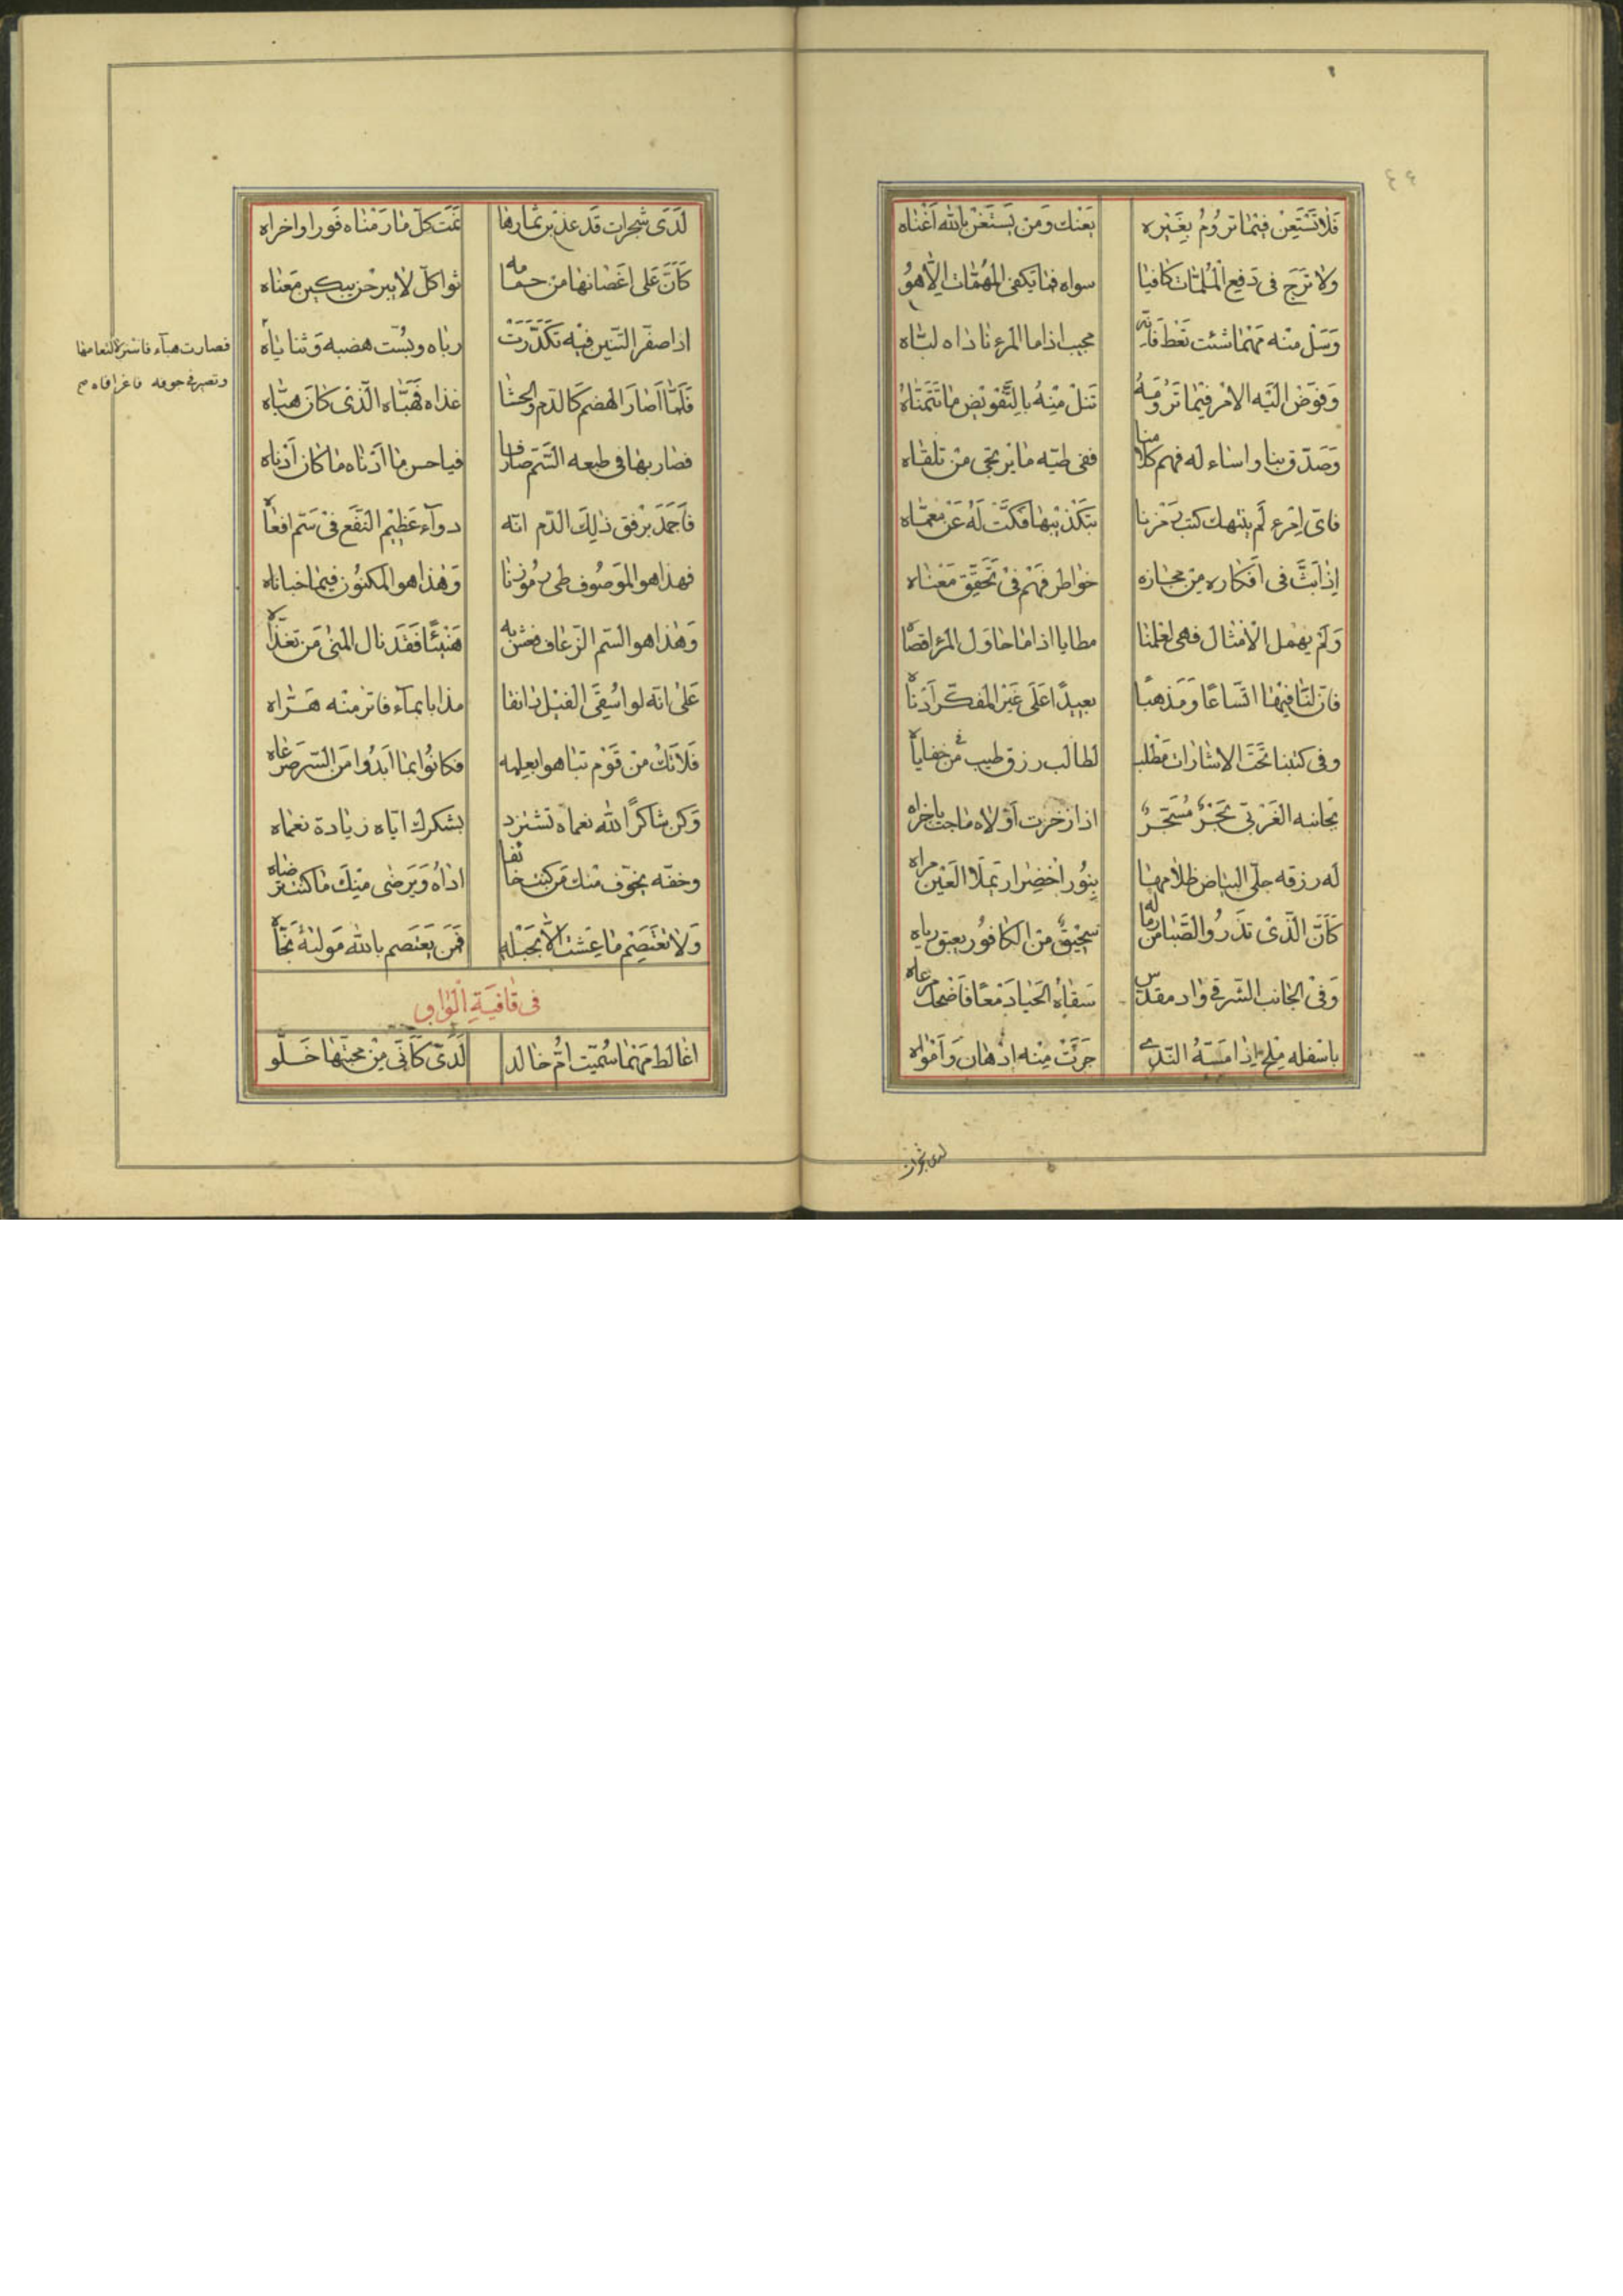 ٤٤
فَلَا تَسْتَعِنْ فِيمَا تَرُومُ بِغَيْرِهِ يَعِنْكَ وَمَنْ يَسْتَغْنِ بِاللهِ أَغْنَاه
وَلَا تَرْجُ فِى دَفْعِ الْمُلِمَّاتِ كَافِيًا سِوَاه فَمَا يَكْفِى الْمُهِمَّاتِ اِلَّا هُو
وَسَلْ مِنْه مَهْمَا شِئْت تُعْطَ فَاِنَّه مُجِيب اِذَا مَا الْمَرْء نَادَاه لَبَّاه
وَفَوِّضْ اِلَيْهِ الْاَمْرَ فِيْمَا تَرُومُهُ تَنَلْ مِنْهُ بِالتَّفْوِيضِ مَا تَتَمَنَّاهُ
وَصَدّق بنا وَاسَاء لَه فهم كلامنا ففى طيّه مَا يرتجى مَنْ تَلَقَّاه
فاىّ امرء لَم ينهك كتب رمزنا بتكذيبها فكّت لَهُ عَنْ مُعَمَّاه
اِذَا بَثَّ فى اَفْكَارِه مِن مجَازه خَوَاطر فَهْم فِىْ تَحَقّق مَعْنَاه
وَلَمْ يهمل الْاَمْثَال فهى لعلمنا مطايا اذا مَا حَاوَل المَرْء اقصَاه
فانّ لنَا فيهَا اتّسَاعًا وَمَذْهبًا بَعِيدًا عَلَى غَيْر المفكّر اَدْنَاه
وفى كتبنا تَحْتَ الاشَارَات مَطْلب لطَالب رزق طيب فى خفَايَاه
بجَانبه الْغَرْبِى بَحْرٌ مُسَجَّرٌ اذا زخرت اَوْلَاه مَاجت بِاخراه
لَه رزقه جلّى البيَاض ظلَامهَا بِنُور اخضِرَار يَملَأ الْعَيْن مرآه
كَاَنّ الَّذِىْ تَذْرُو الصَّبَا من رمَاله سَحِيقٌ مِن الكَافُور يعبق ريّاه
وَفِىْ الجَانب الشَّرقى وَاد مقدّس سَقَاهُ الحَيَا دَمْعًا فَاَضْحك مرعاه
باَسفله مِلح اِذَا مَسّهُ النّدى جَرَتْ مِنْه اَدْهَان وَاَمْوَاه
لدى شجرات
لَدَى شَجَرات قَد عذبن ثمَارهَا نَمَت كلّ مَا رمنَاه فَورا وَاخراه
كَاَنّ عَلَى اَغْصَانهَا مَنْ حمَامه ثواكل لَا يبرحن يبكين مَعنَاه
اذا صفّر التنين فيْه تَكَدَّرَتْ ربَاه وبُسّت هضبه وَثنايَاه
فصارت هباء فاستنزه التعا منها
وتصير فى جوفه فاغرا فاه صح
فَلَمّا اَصَارَ الهَضْم كَالدَّم وَالحشَا غذاه فَهَبّاه الَّذِىْ كَانَ هَبَّاه
فصَار بهَا فى طبعه السَّمّ صَارفا فيا حسن مَا اَدّاه مَا كَان اَدْنَاه
فَاَجْمَد بَرفق ذٰلِكَ الدَّم انّه دوآء عَظِيْم النَّفْع فِىْ سَمّ افعَاه
فهذا هو المَوصُوف طى رُمُوزنَا وَهٰذَا هو المكنُون فيمَا خبانَاه
وَهٰذَا هو السّم الزّعَاف فعش به هَنِيْئًا فَقَد نال المنى مَن تغذّاه
عَلَى انّه لو اسُقِىَ الفيْل ذانفا مذابا بمآء فاتر منْه هَرّاه
فَلَا تَكُ مِنْ قَوْم تبَاهوا بعِلمه فكَانُوا بمَا اَبدُوا مِنَ السّر صرعَاه
وَكن شَاكرًا لله نعمَاه تَستزد بشكرك ايّاه زيَادة نعمَاه
وخفه بخوف منك مَن كنت خائفا اذاهُ وَيَرضى مِنْكَ مَا كنت ترضَاه
وَلَا تعْتَصِمْ مَا عِشْتَ اِلَّا بِحَبْله فَمَن يَعتَصم بالله مَولَىهُ نَجَّاه
فى قَافِيَةِ الْوَاوِ
اغَالط مَهْمَا سُمّيَت اُمّ خَالد لَدَىّ كَاَنّى مِنْ مَحَبّتهَا خَلو